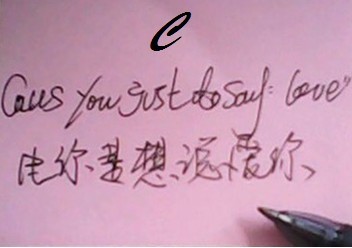 C
Caus You just do say: Love"
你是想说爱你、